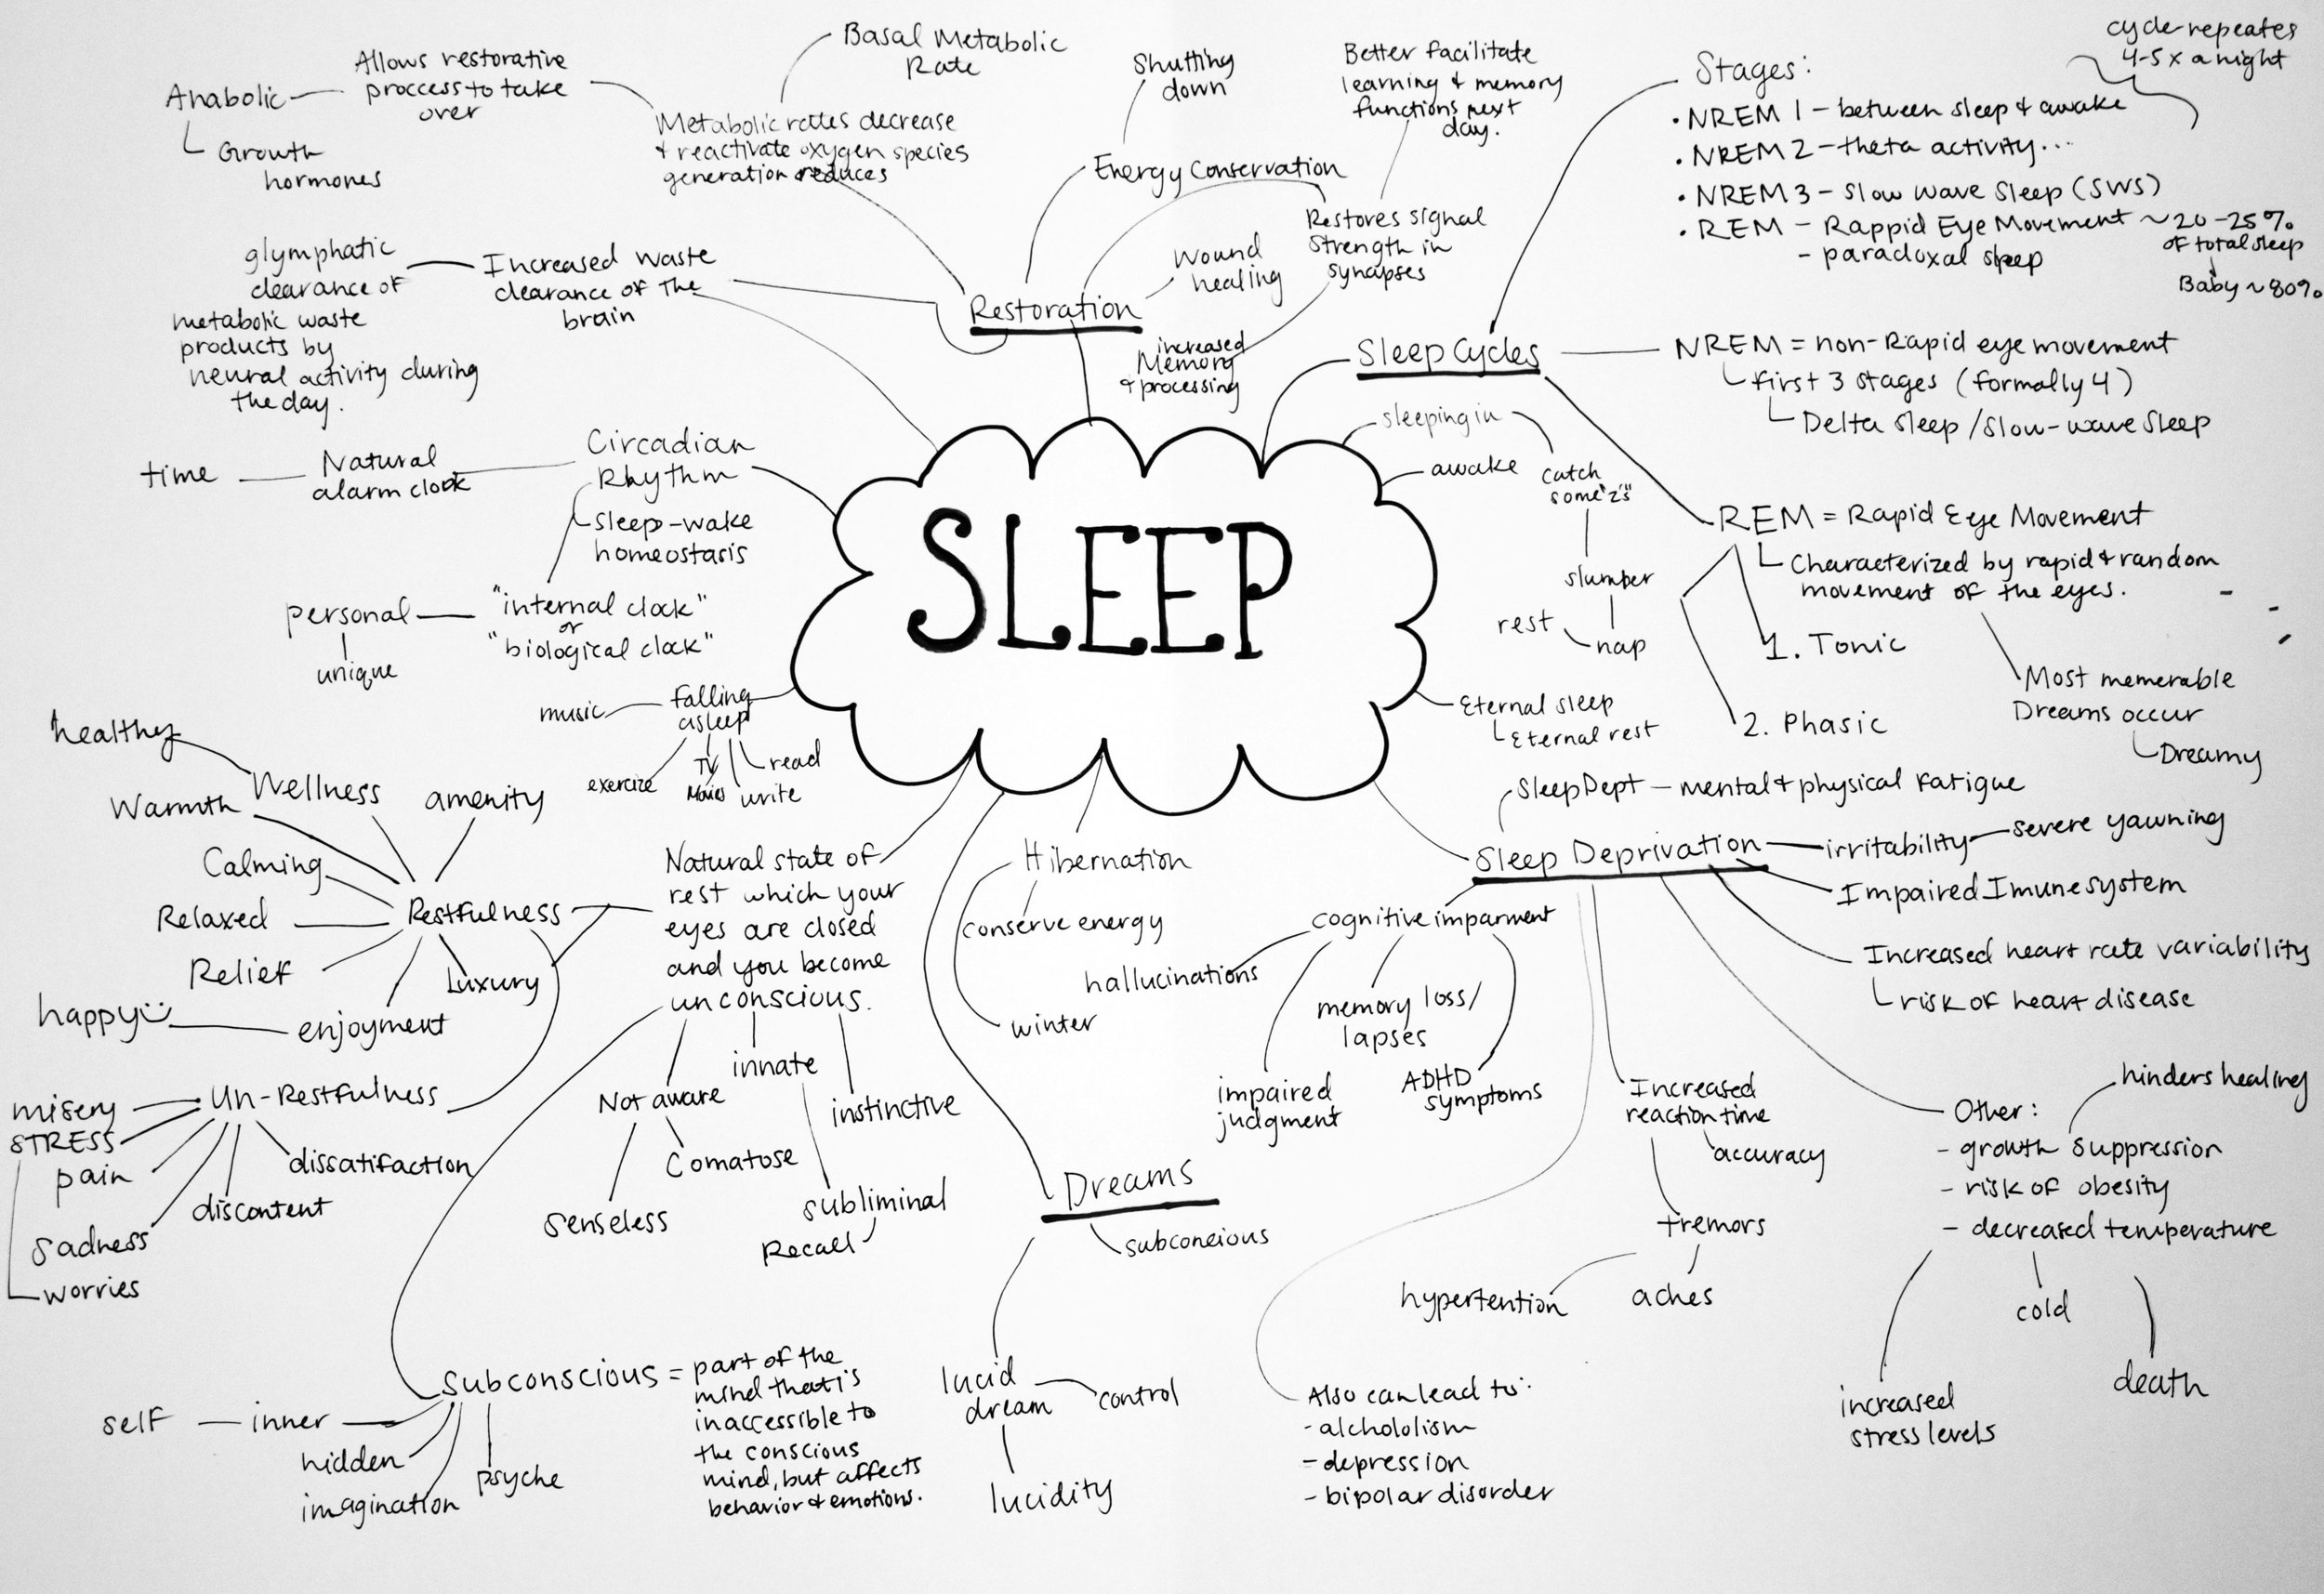 SLEEP
Basal Metabolic
Rate
Allows restorative
proccess to take
over
Anabolic
Growth
hormones
Metabolic rates decrease
& reactivate oxygen species
generation reduces
Shutting
down
Energy Conservation
Better facilitate
learning & memory
functions next
day.
Restores signal
strength in
synapses
Wound
healing
Restoration
increased
Memory
& processing
glymphatic
clearance of
metabolic waste
products by
neural activity during
the day.
Increased waste
clearance of the
brain
Stages:
cycle repeates
4-5 x a night
• NREM 1 - between sleep & awake
• NREM 2 - theta activity...
• NREM 3 - Slow Wave Sleep (SWS)
• REM - Rappid Eye Movement ~ 20-25%
of total sleep
- paradoxal sleep
Baby ~ 80%
Sleep Cycles
NREM = non-Rapid eye movement
first 3 stages (formally 4)
Delta Sleep / Slow-wave sleep
REM = Rapid Eye Movement
Characterized by rapid & random
movement of the eyes.
1. Tonic
2. Phasic
Most memerable
Dreams occur
Dreamy
sleeping in
awake
catch
some "z's"
slumber
rest
nap
Eternal sleep
Eternal rest
Circadian
Rhythm
Natural
alarm clock
time
sleep-wake
homeostasis
"internal clock"
or
"biological clock"
personal
unique
falling
asleep
music
exercize
TV
Movies
write
read
healthy
Wellness
amenity
Warmth
Calming
Relaxed
Restfulness
Relief
Luxury
happy
enjoyment
Natural state of
rest which your
eyes are closed
and you become
unconscious.
Un-Restfulness
misery
STRESS
pain
dissatifaction
discontent
Sadness
worries
Not aware
innate
instinctive
Comatose
senseless
subliminal
Recall
Hibernation
conserve energy
winter
Sleep Dept - mental & physical fatigue
Sleep Deprivation
irritability
severe yawning
Impaired Imune system
Increased heart rate variability
risk of heart disease
cognitive imparment
hallucinations
memory loss/
lapses
impaired
judgment
ADHD
symptoms
Increased
reaction time
accuracy
tremors
hypertention
aches
hinders healing
Other:
- growth suppression
- risk of obesity
- decreased temperature
cold
death
increased
stress levels
Dreams
subconcious
lucid
dream
control
lucidity
Also can lead to:
- alchololism
- depression
- bipolar disorder
Subconscious = part of the
mind that is
inaccessible to
the conscious
mind, but affects
behavior & emotions.
self
inner
hidden
imagination
psyche